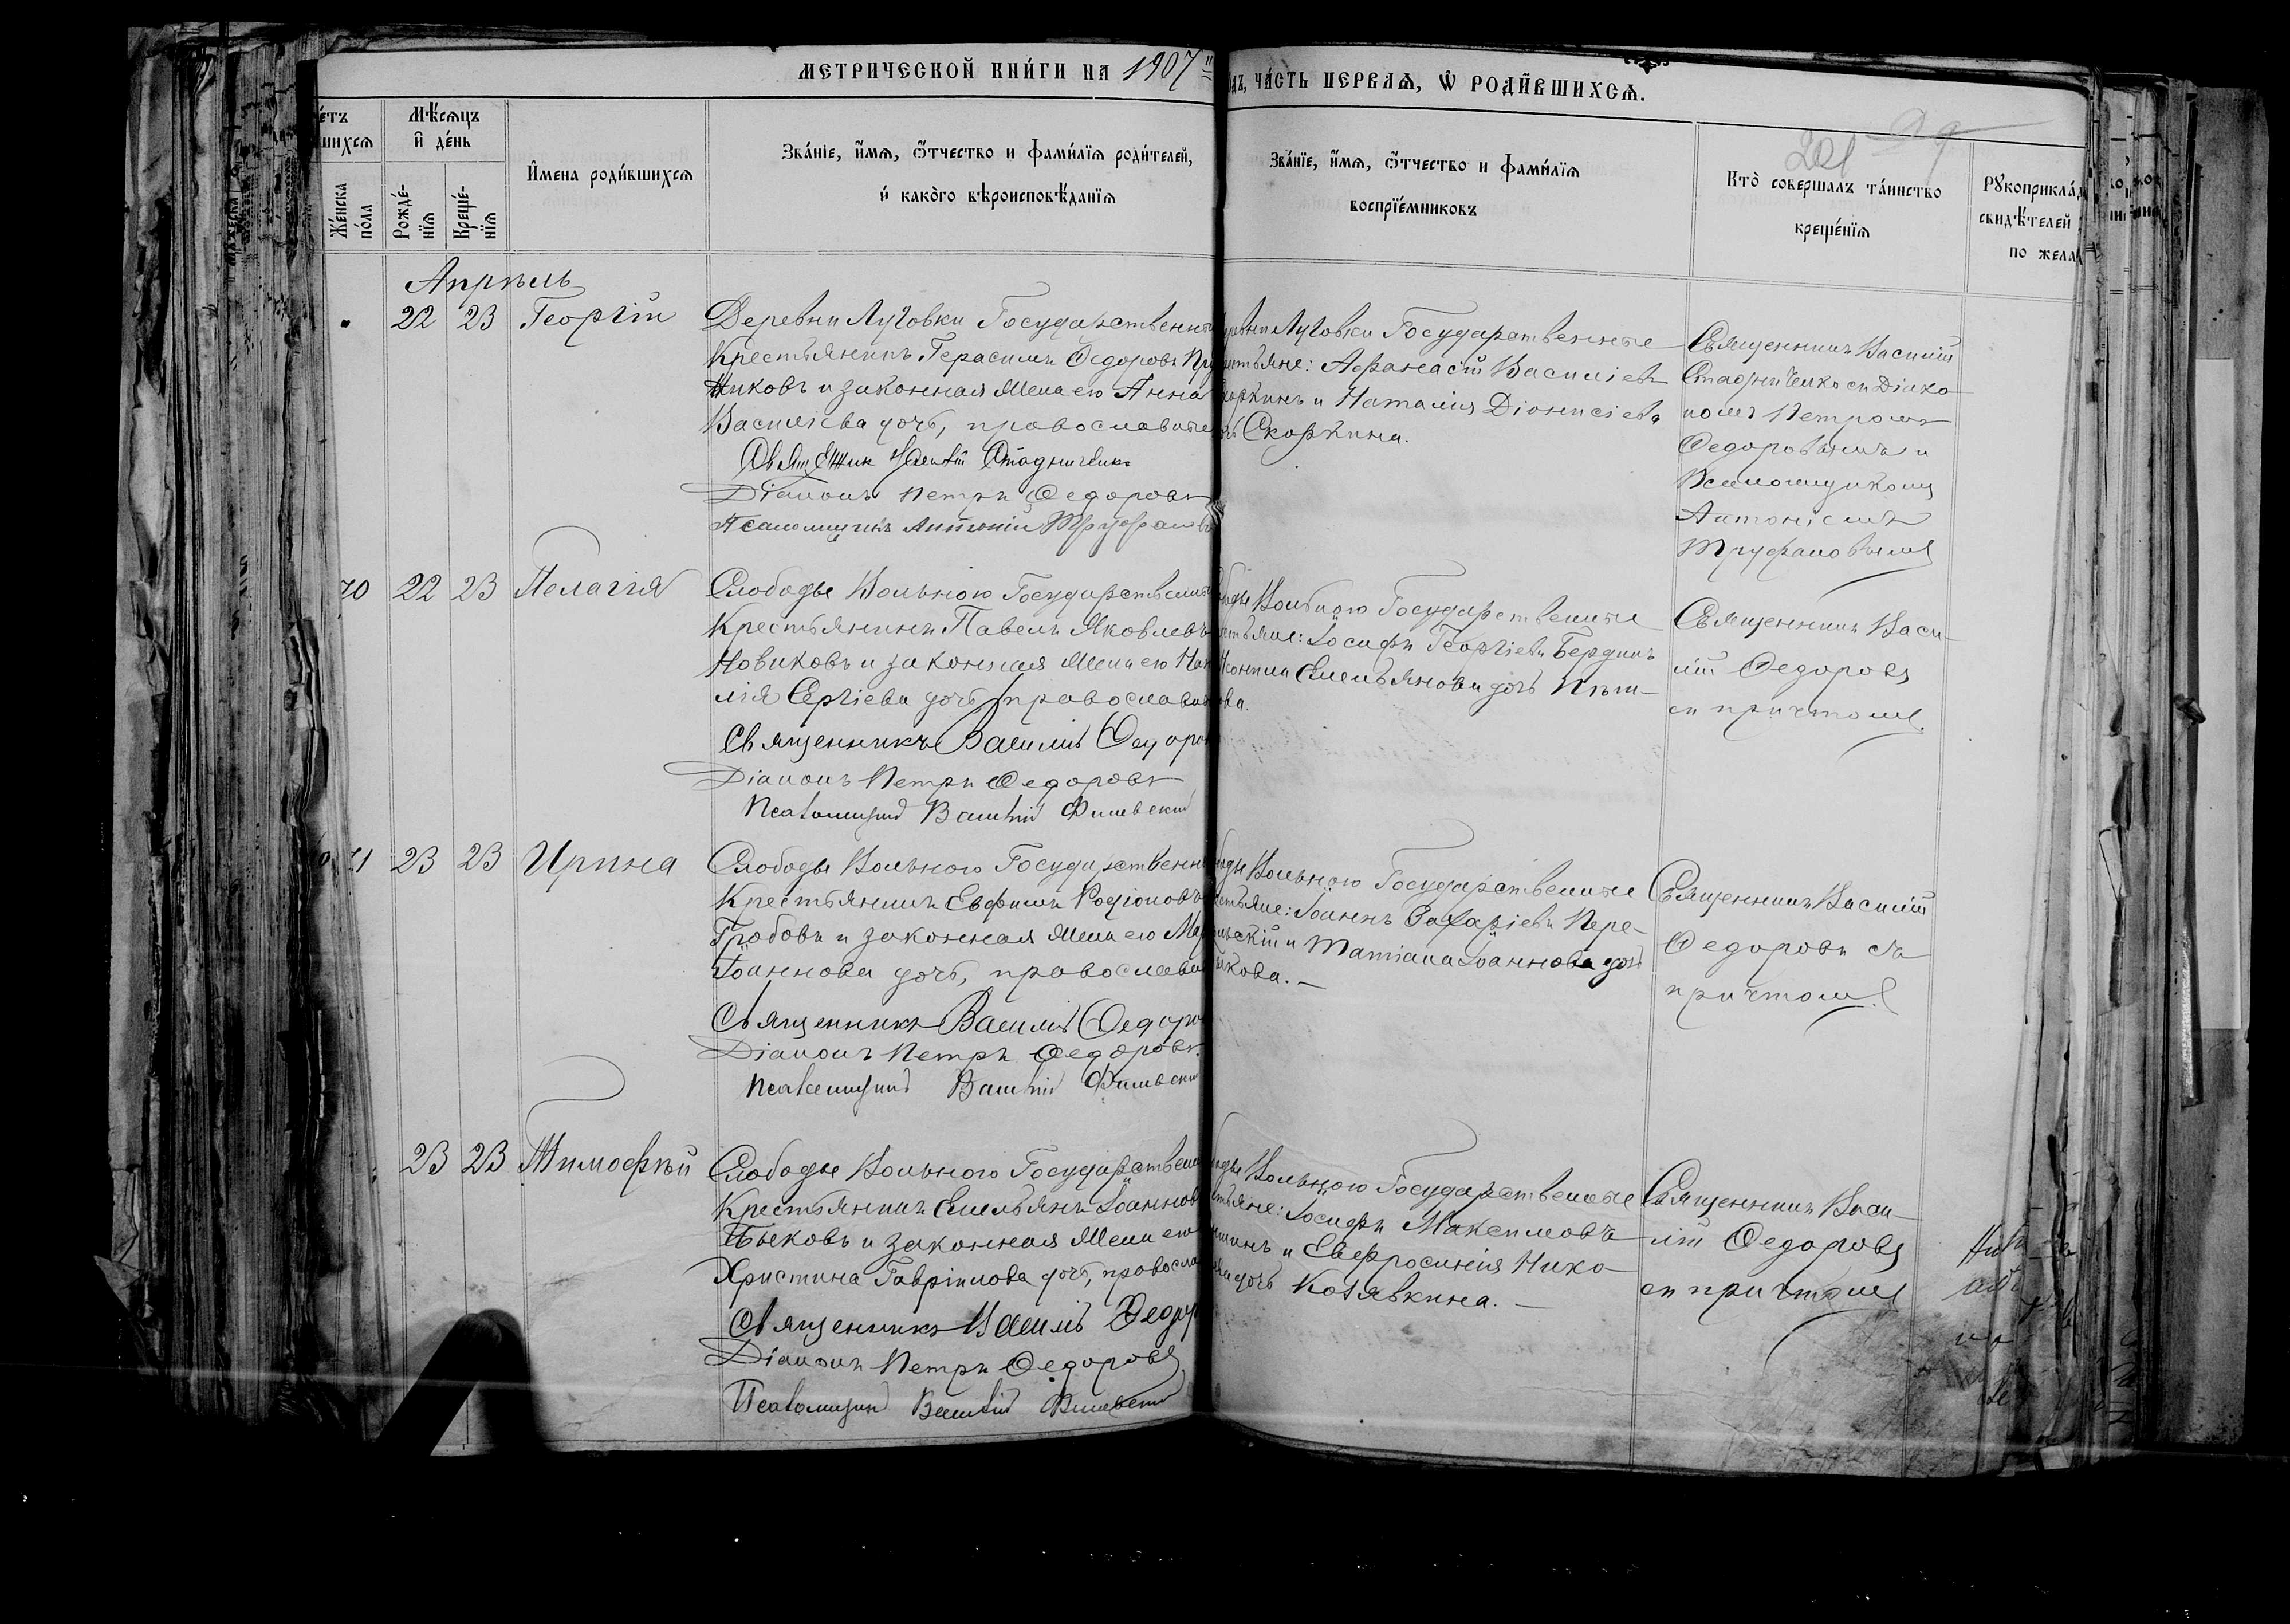 МЕТРИЧЕСКОЙ КНИ́ГИ НА 1907
ЧА́СТЬ ПЕРВАѦ, Ѡ РОДИ́ВШИХСѦ.
201
МѢ́сѧцъ
и҆ де́нь
шихсѧ
Же́нска
по́ла
Рожде́-
нїѧ
Креще́-
нїѧ
И҆мена роди́вшихсѧ
Зва́нїе, и҆́мѧ, ѻ҆́тчество и фами́лїѧ роди́телей,
и҆ како̀го вѣроисповѣ́данїѧ
Зва́нїе, и҆́мѧ, ѻ҆́тчество и фами́лїѧ
воспрїе́мниковъ
Кто̀ совершалъ та́инство
креще́нїѧ
Рꙋкоприкла́д
свидѣ́телей
по жела
Апрѣль
22 23 Георгій
Деревни Луговки Государственн
Крестьянинъ Герасимъ Федоровъ Пру
никовъ и законная жена его Анна
Васильева дочь, православные
Священник Стадниченко
Діаконъ Петръ Федоровъ
Псаломщикъ Антоній Труфанов
Луговки Государственные
Афанасій Васильевъ
и Наталія Діонисіева
Скоркина.
Священникъ Василій
Стадниченко съ Діако
номъ Петромъ
Федоровымъ и
Псаломщикомъ
Антоніемъ
Труфановымъ
70 22 23 Пелагія
Слободы Вольного Государственн
Крестьянинъ Павелъ Яковлевъ
Новиковъ и законная жена его Ната
лія Сергіева дочь, православн
Священникъ Василій Федоров
Діаконъ Петръ Федоровъ
Псаломщикъ Василій
Вольного Государственные
Іосифъ Георгіевъ Бердинъ
Емельянова дочь
Священникъ Васи-
лій Федоровъ
съ причтомъ.
71 23 23 Ирина
Слободы Вольного Государственн
Крестьянинъ Евфимъ Родіоновъ
Гробовъ и законная жена его Мар
Іоаннова дочь, православн
Священникъ Василій Федоров
Діаконъ Петръ Федоровъ.
Псаломщикъ Василій
Вольного Государственные
Іоаннъ Захаріевъ Пере-
и Татіана Іоаннова дочь
кова. —
Священникъ Василій
Федоровъ съ
причтомъ.
23 23 Тимофѣй
Слободы Вольного Государственн
Крестьянинъ Емельянъ Іоаннов
Быковъ и законная жена его
Христина Гавріилова дочь, правосла
Священникъ Василій Федор
Діаконъ Петръ Федоровъ
Псаломщикъ Василій
Вольного Государственные
Іосифъ Максимовъ
и Евфросинія Нико
дочь Козявкина. —
Священникъ Васи-
лій Федоровъ
съ причтомъ